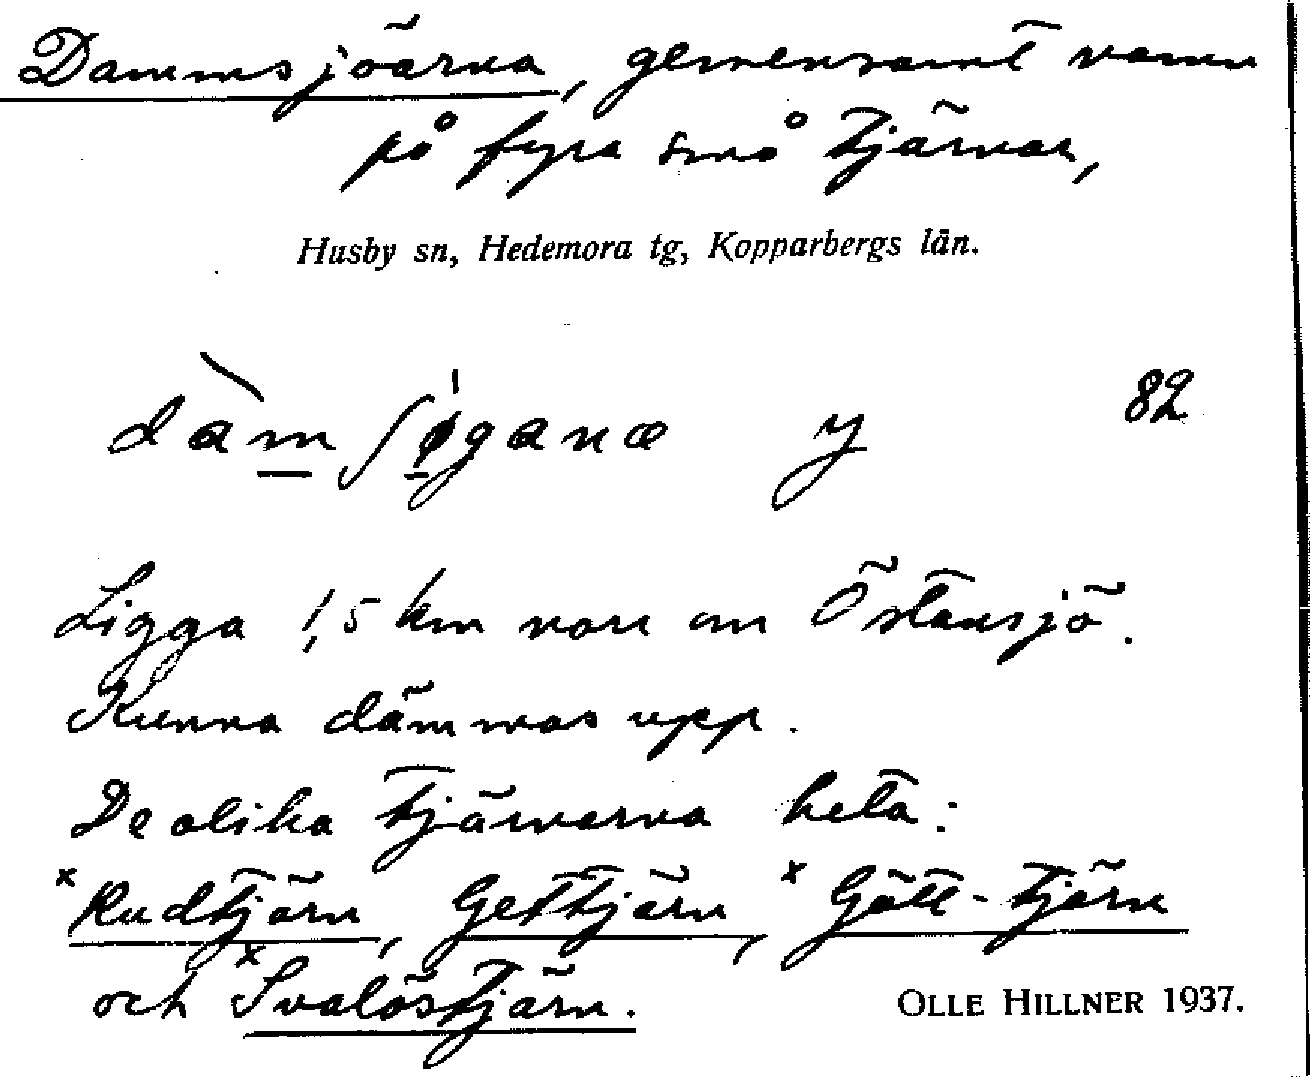 Dammsjöarna, gemensamt namn
på fyra små tjärnar,
Husby sn, Hedemora tg, Kopparbergs län.
dàmʃøganæ y 82
Ligga 1,5 km norr om Östansjö.
Kunna dämmas upp.
De olika tjärnarna heta:
x Rudtjärn, Gettjärn, x Gött-tjärn
och x Svalöstjärn.
OLLE HILLNER 1937.